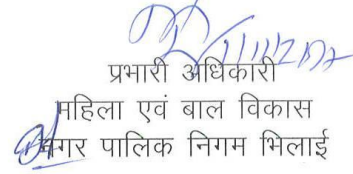 प्रभारी अधिकारी
महिला एवं बाल विकास
नगर पालिक निगम भिलाई